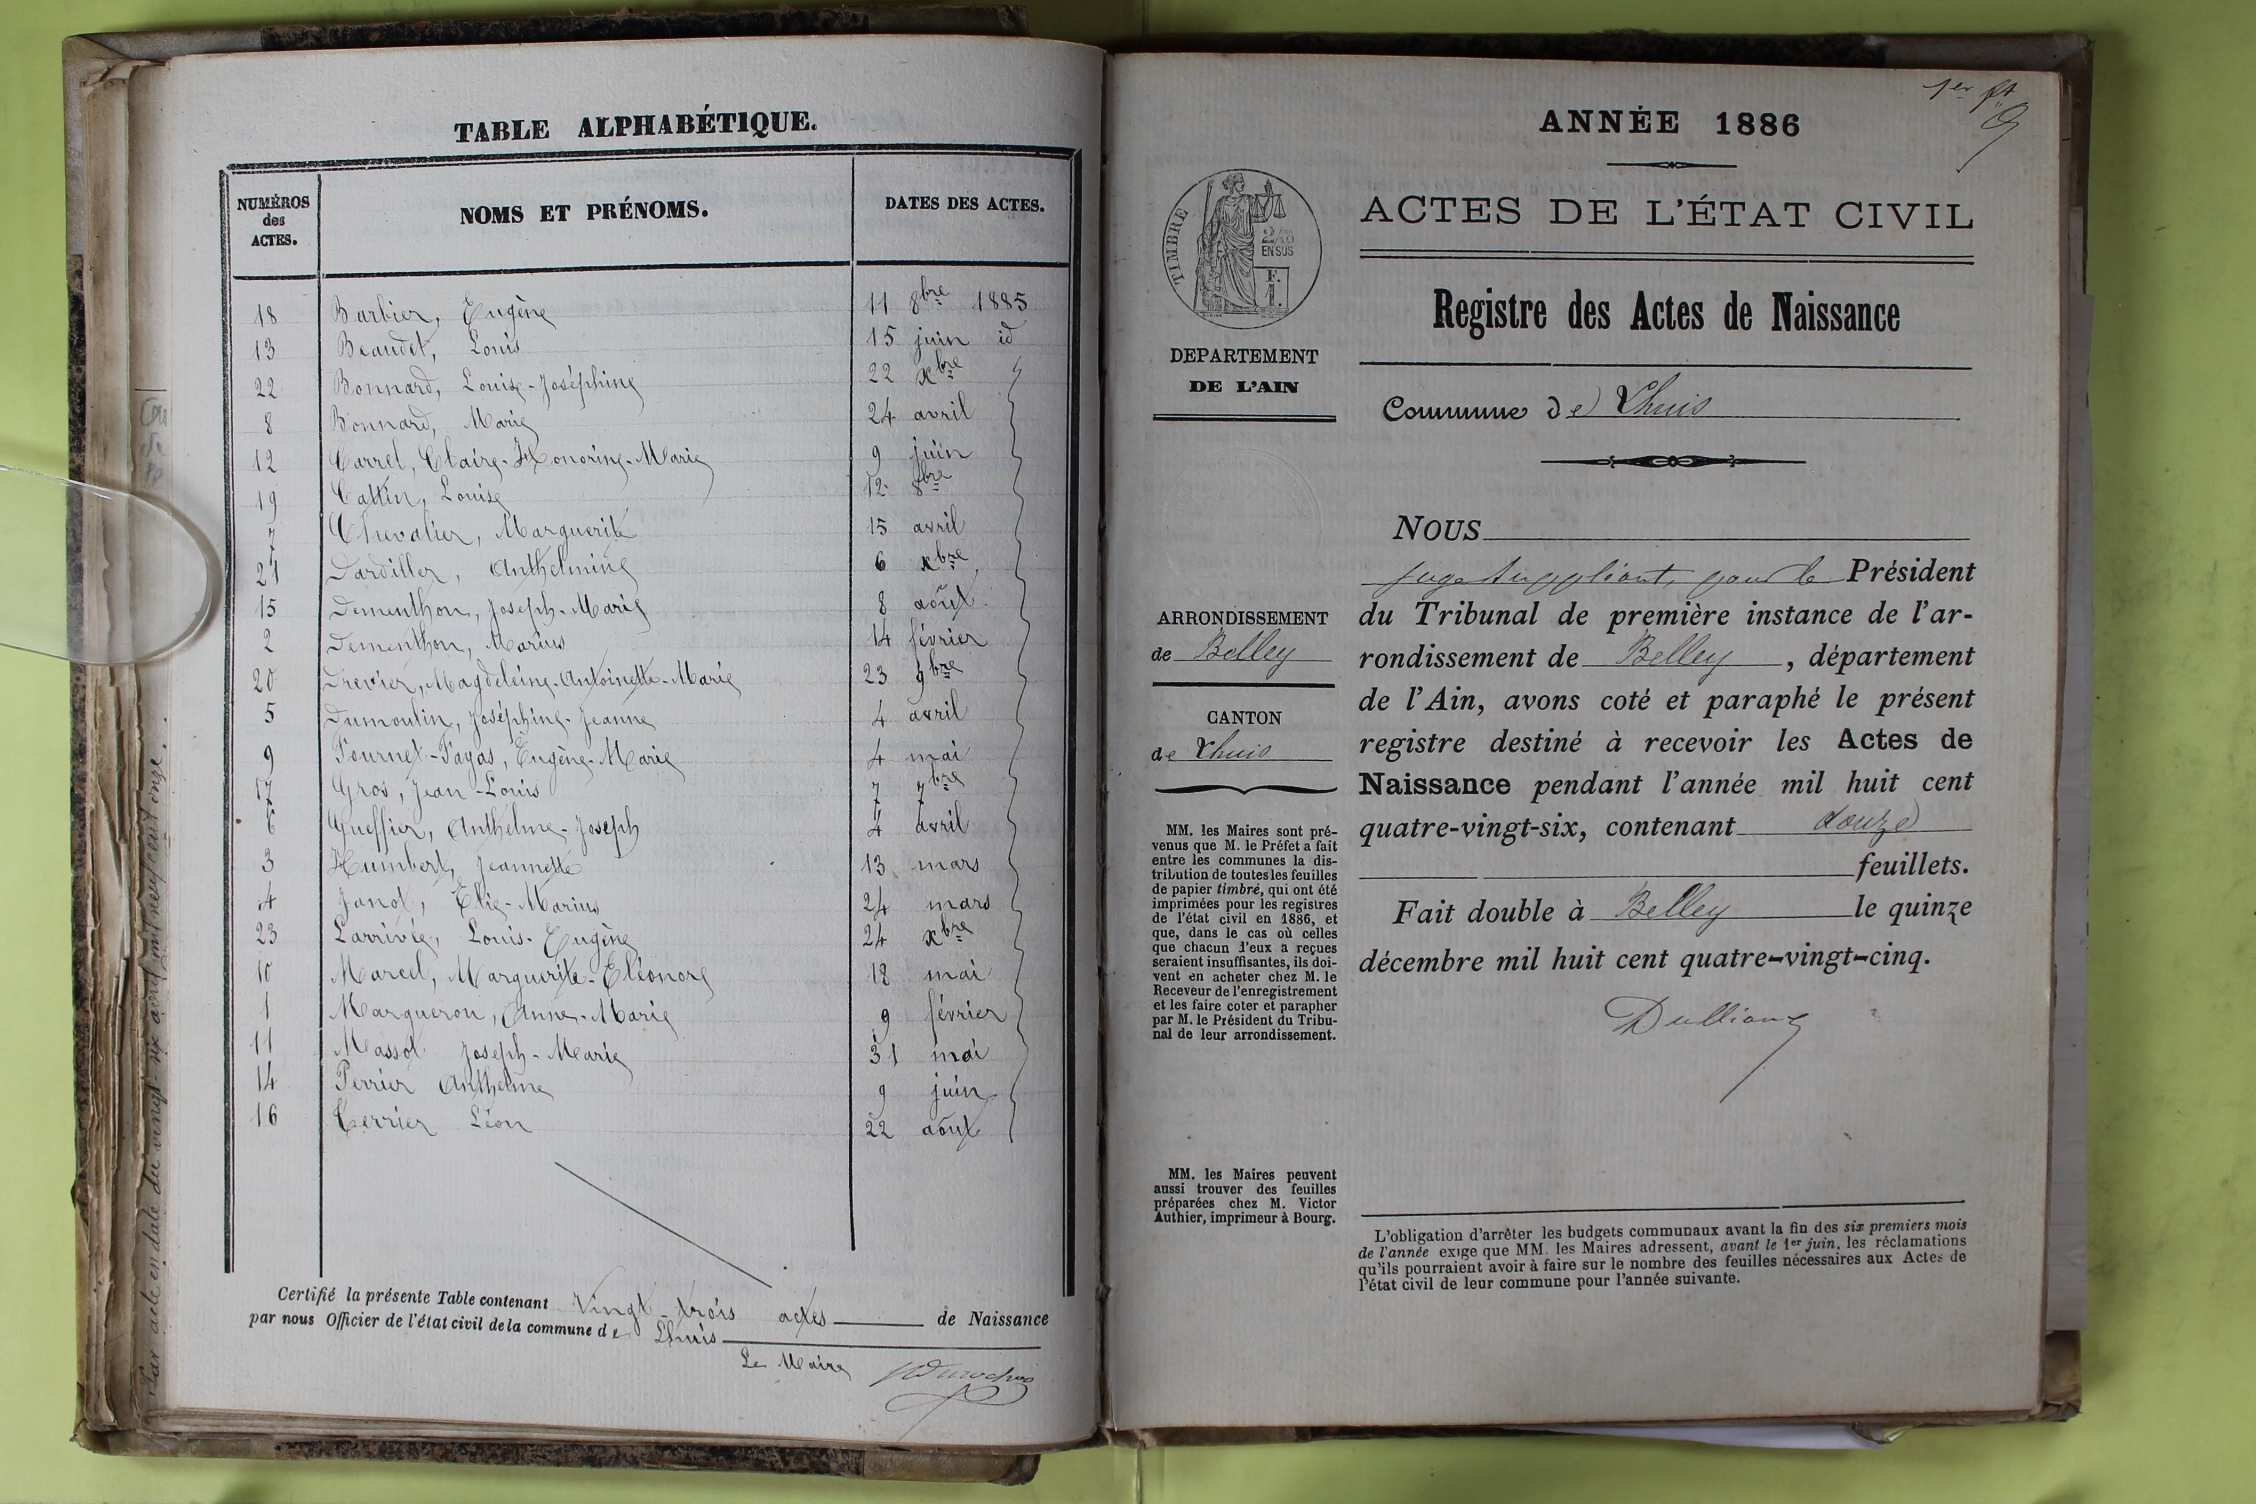 TABLE ALPHABÉTIQUE.
NUMÉROS des ACTES. NOMS ET PRÉNOMS. DATES DES ACTES.
18 Barbier, Eugène 11 8bre 1885
13 Beaudet, Louis 15 juin id
22 Bonnard, Louise-Joséphine 22 xbre
8 Bonnard, Marie 24 avril
12 Carrel, Claire-Honorine-Marie 9 juin
19 Cattin, Louise 12 8bre
7 Chevalier, Marguerite 15 avril
21 Dardiller, Anthelmine 6 xbre
15 Dementhon, Joseph-Marie 8 août
2 Dementhon, Marius 14 février
20 Drevier, Magdeleine-Antoinette-Marie 23 9bre
5 Dumoulin, Joséphine-Jeanne 4 avril
9 Fournet-Fayas, Eugène-Marie 4 mai
17 Gros, Jean-Louis 7 7bre
6 Gueffier, Anthelme-Joseph 4 avril
3 Humbert, Jeannette 13 mars
4 Janot, Elie-Marius 24 mars
23 Larrivée, Louis-Eugène 24 xbre
10 Marcel, Marguerite-Eléonore 18 mai
1 Margueron, Anne-Marie 9 février
11 Massot Joseph-Marie 31 mai
14 Perrier Anthelme 9 juin
16 Terrier Léon 22 août
Certifié la présente Table contenant Vingt-trois actes de Naissance
par nous Officier de l'état civil de la commune de Lhuis
Le Maire
Par acte en date du vingt-six avril mil neuf cent onze.
1er ft
ANNÉE 1886
ACTES DE L'ÉTAT CIVIL
Registre des Actes de Naissance
Commune de Lhuis
TIMBRE
2/10 EN SUS
F. 1.
DEPARTEMENT
DE L'AIN
ARRONDISSEMENT
de Belley
CANTON
de Lhuis
MM. les Maires sont pré-
venus que M. le Préfet a fait
entre les communes la dis-
tribution de toutes les feuilles
de papier timbré, qui ont été
imprimées pour les registres
de l'état civil en 1886, et
que, dans le cas où celles
que chacun d'eux a reçues
seraient insuffisantes, ils doi-
vent en acheter chez M. le
Receveur de l'enregistrement
et les faire coter et parapher
par M. le Président du Tribu-
nal de leur arrondissement.
MM. les Maires peuvent
aussi trouver des feuilles
préparées chez M. Victor
Authier, imprimeur à Bourg.
NOUS
juge suppléant, pour le Président
du Tribunal de première instance de l'ar-
rondissement de Belley, département
de l'Ain, avons coté et paraphé le présent
registre destiné à recevoir les Actes de
Naissance pendant l'année mil huit cent
quatre-vingt-six, contenant douze
feuillets.
Fait double à Belley le quinze
décembre mil huit cent quatre-vingt-cinq.
L'obligation d'arrêter les budgets communaux avant la fin des six premiers mois
de l'année exige que MM. les Maires adressent, avant le 1er juin, les réclamations
qu'ils pourraient avoir à faire sur le nombre des feuilles nécessaires aux Actes de
l'état civil de leur commune pour l'année suivante.